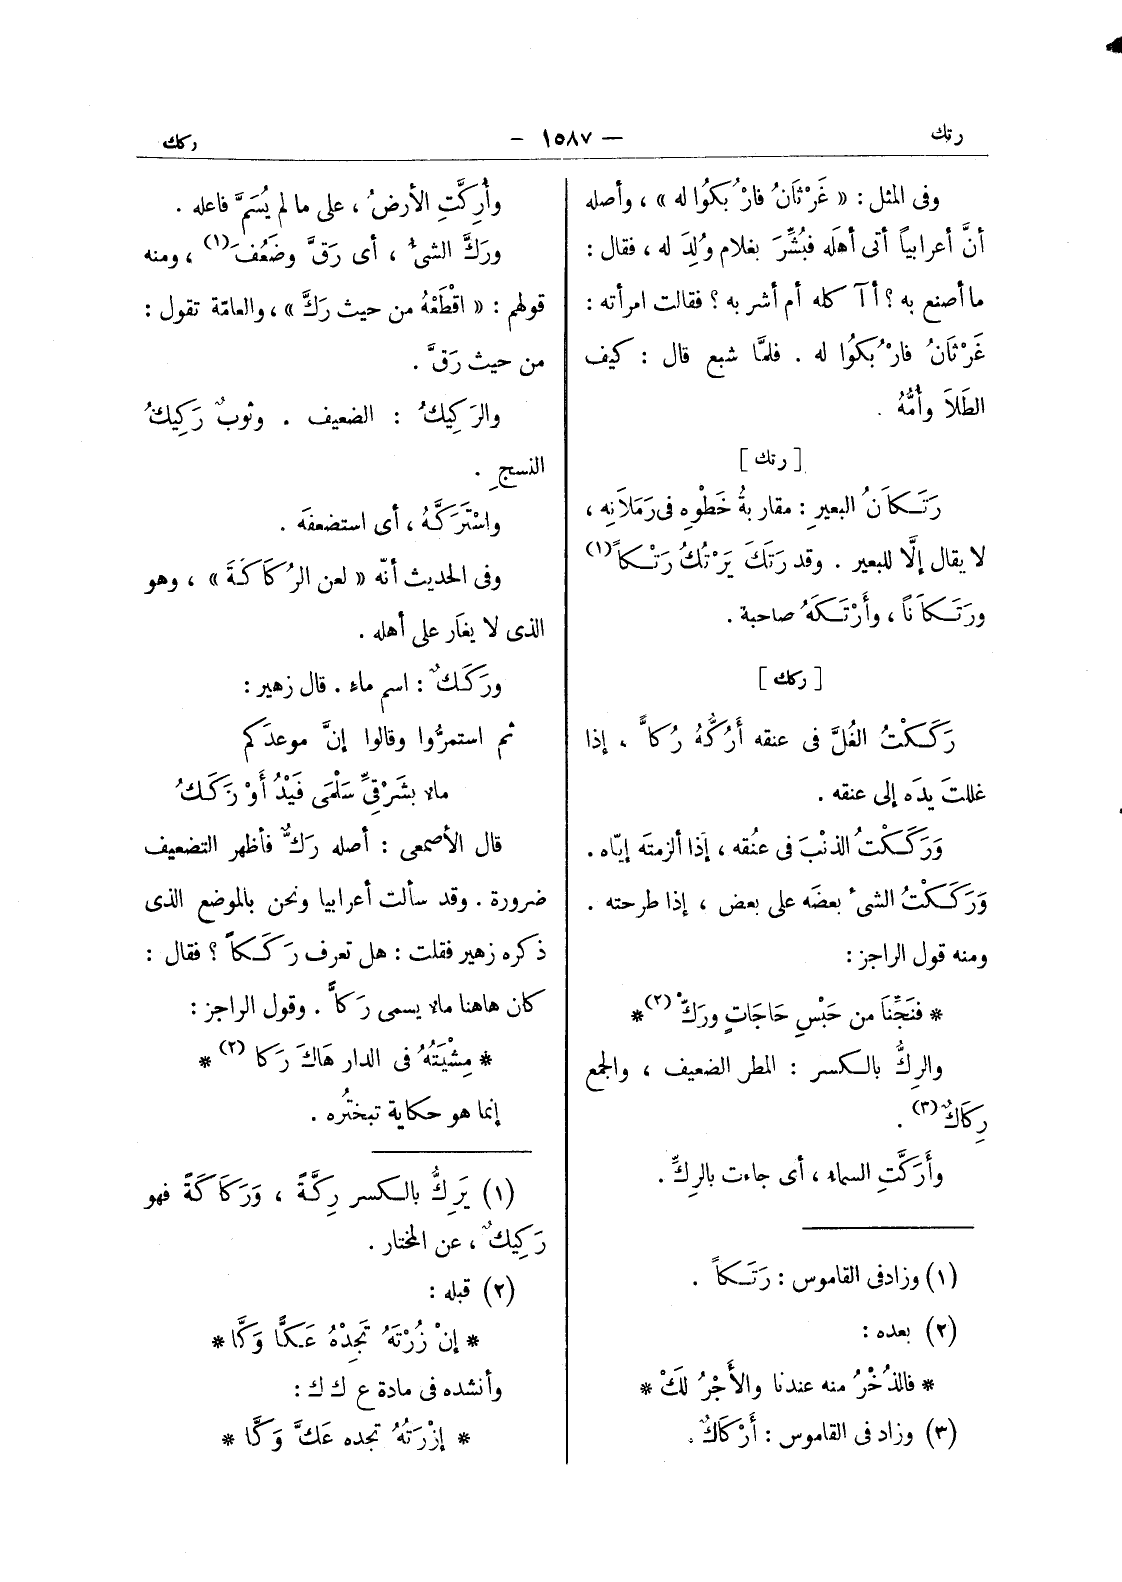 رتك
— ١٥٨٧ —
ركك
وفى المثل : « غَرْثَانُ فارْبُكُوا له » ، وأصله
أنَّ أعرابياً أتى أهلَه فبُشِّرَ بغلام وُلِدَ له ، فقال :
ما أصنع به ؟ أآكله أم أشربه ؟ فقالت امرأته :
غَرْثَانُ فارْبُكُوا له . فلمَّا شبع قال : كيف
الطَلَا وأُمُّهُ .
[ رتك ]
رَتَكَانُ البعيرِ : مقاربةُ خَطْوِهِ فى رَمَلَانِه ،
لا يقال إلَّا للبعير . وقد رَتَكَ يَرْتُكُ رَتْكاً (١)
ورَتَكَاناً ، وأَرْتَكَهُ صاحبة .
[ ركك ]
رَكَكْتُ الغُلَّ فى عنقه أَرُكُّهُ رُكاًّ ، إذا
غللتَ يدَه إلى عنقه .
وَرَكَكْتُ الذنْبَ فى عنُقه ، إَذا ألزمتَه إيّاه .
وَرَكَكْتُ الشىءَ بعضَه على بعض ، إذا طرحته .
ومنه قول الراجز :
* فنَجِّنَا من حَبْسِ حَاجَاتٍ ورَكّْ (٢) *
والرِكُّ بالكسر : المطر الضعيف ، والجمع
رِكَاكٌ (٣) .
وأَرَكَّتِ السماء ، أى جاءت بالرِكِّ .
(١) وزاد فى القاموس : رَتَكاً .
(٢) بعده :
* فالذُخْرُ منه عندنا والأَجْرُ لَكْ *
(٣) وزاد فى القاموس : أَرْكَاكٌ .
وأُركَّتِ الأرضُ ، على ما لم يُسَمَّ فاعله .
ورَكَّ الشىءُ ، أى رَقَّ وضَعُفَ (١) ، ومنه
قولهم : « اقْطَعْهُ من حيث رَكَّ » ، والعامّة تقول :
من حيث رَقَّ .
والرَكِيكُ : الضعيف . وثوبٌ رَكِيكُ
النسجِ .
واسْتَرَكَّهُ ، أى استضعفَه .
وفى الحديث أنّه « لعن الرُكَاكَةَ » ، وهو
الذى لا يغَار على أهله .
ورَكَكٌ : اسم ماء . قال زهير :
ثم استمرُّوا وقالوا إنَّ موعدَكم
ماء بشَرْقِىِّ سَلْمَى فَيْدُ أَوْ رَكَكُ
قال الأصمعى : أصله رَكٌّ فأظهر التضعيف
ضرورة . وقد سألت أعرابيا ونحن بالموضع الذى
ذكره زهير فقلت : هل تعرف رَكَكاً ؟ فقال :
كان هاهنا ماء يسمى رَكاًّ . وقول الراجز :
* مِشْيَتُهُ فى الدار هَاكَ رَكا (٢) *
إنما هو حكاية تبختُره .
(١) يَرِكُّ بالكسر رِكَّةً ، وَرَكَاكَةً فهو
رَكِيكٌ ، عن المختار .
(٢) قبله :
* إنْ زُرْتَهُ تَجِدْهُ عَكَّا وَكَّا *
وأنشده فى مادة ع ك ك :
* إزْرَتُهُ تجده عَكَّ وَكَّا *